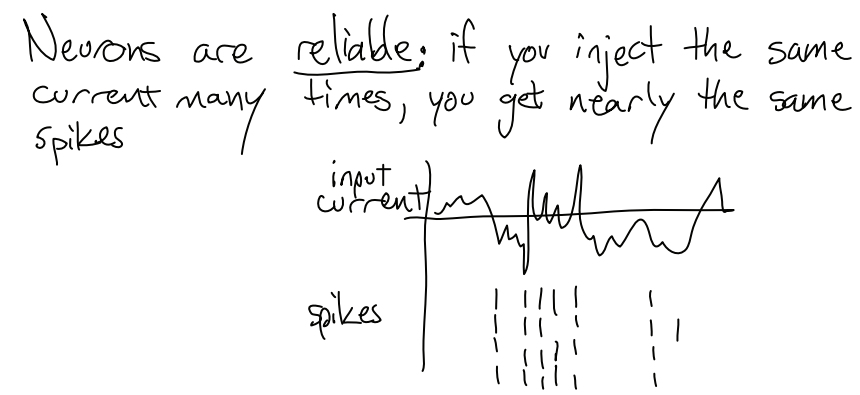 Neurons are reliable: if you inject the same
current many times, you get nearly the same
spikes
input
current
spikes